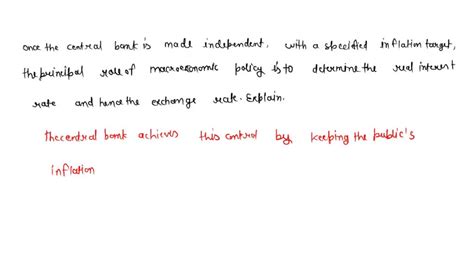 Once the central bank is made independent, with a specified inflation target,
the principal role of macroeconomic policy is to determine the real interest
rate and hence the exchange rate. Explain.
The central bank achieves this control by keeping the public's
inflation